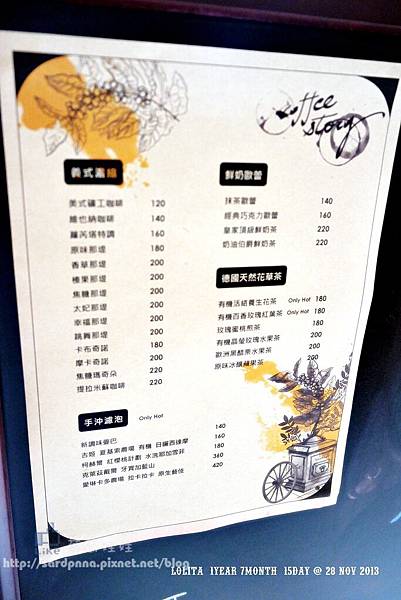 Coffee
story
義式素描
美式礦工咖啡 120
維也納咖啡 140
蘿芮塔特調 160
原味那堤 180
香草那堤 200
榛果那堤 200
焦糖那堤 200
太妃那堤 200
幸福那堤 200
跳舞那堤 200
卡布奇諾 180
摩卡奇諾 200
焦糖瑪奇朵 220
提拉米蘇咖啡 220
手沖濾泡 Only Hot
新調味曼巴 140
古姬 夏基索農場 有機 日曬西達摩 160
柯赫爾 紅櫻桃計劃 水洗耶加雪菲 180
克萊茲戴爾 牙買加藍山 360
愛琳卡多農場 拉卡拉卡 原生藝伎 420
鮮奶歐蕾
抹茶歐蕾 140
經典巧克力歐蕾 160
皇家頂級鮮奶茶 220
奶油伯爵鮮奶茶 220
德國天然花草茶
有機活絡養生花茶 Only Hot 180
有機百香玫瑰紅葉茶 Only Hot 180
玫瑰蜜桃煎茶 180
有機晶瑩玫瑰水果茶 200
歐洲黑醋栗水果茶 200
原味冰釀蘋果茶 200
Like
http://sardpnna.pixnet.net/blog
LOLITA 1YEAR 7MONTH 15DAY @ 28 NOV 2013